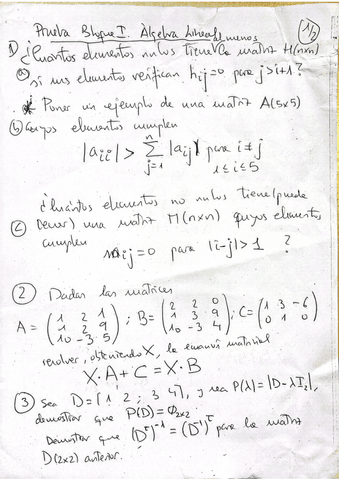 Prueba Bloque I. Algebra Lineal 1/2
1) ¿Cuántos elementos nulos tiene la matriz H(nxn) al menos
a) si sus elementos verifican hij=0 para j>i+1?
Poner un ejemplo de una matriz A(5x5)
b) cuyos elementos cumplen
|aii| > Σ j=1 n |aij| para i≠j
1≤i≤5
¿Cuántos elementos no nulos tiene (puede
c) tener) una matriz M(nxn) cuyos elementos
cumplen
mij=0 para |i-j|>1 ?
2) Dadas las matrices
A = (1 2 1; 1 2 9; 10 -3 5); B = (2 2 0; 1 3 9; 10 -3 4); C = (1 3 -6; 0 1 0)
resolver, obteniendo X, la ecuación matricial
X·A + C = X·B
3) Sea D=[1 2 ; 3 4], y sea P(λ)=|D-λI₂|,
demostrar que P(D)=Φ2x2
Demostrar que (Dᵀ)⁻¹=(D⁻¹)ᵀ para la matriz
D(2x2) anterior.